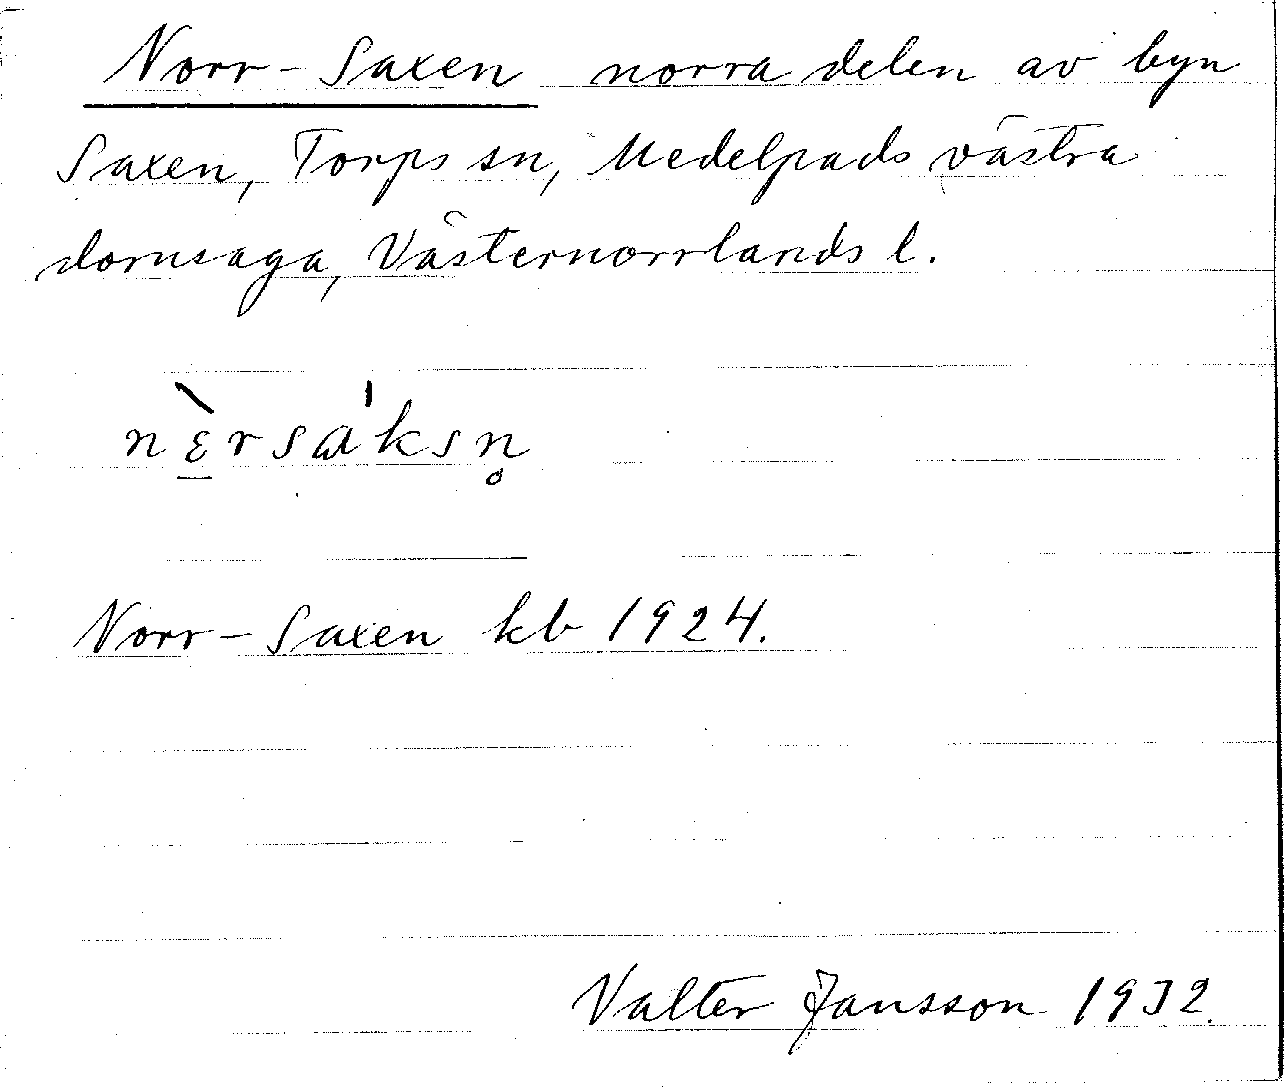 Norr-Saxen norra delen av byn
Saxen, Torps sn, Medelpads västra
domsaga, Västernorrlands l.
nɛ̠̀rsáksn̥
Norr-Saxen kb 1924.
Valter Jansson 1932.